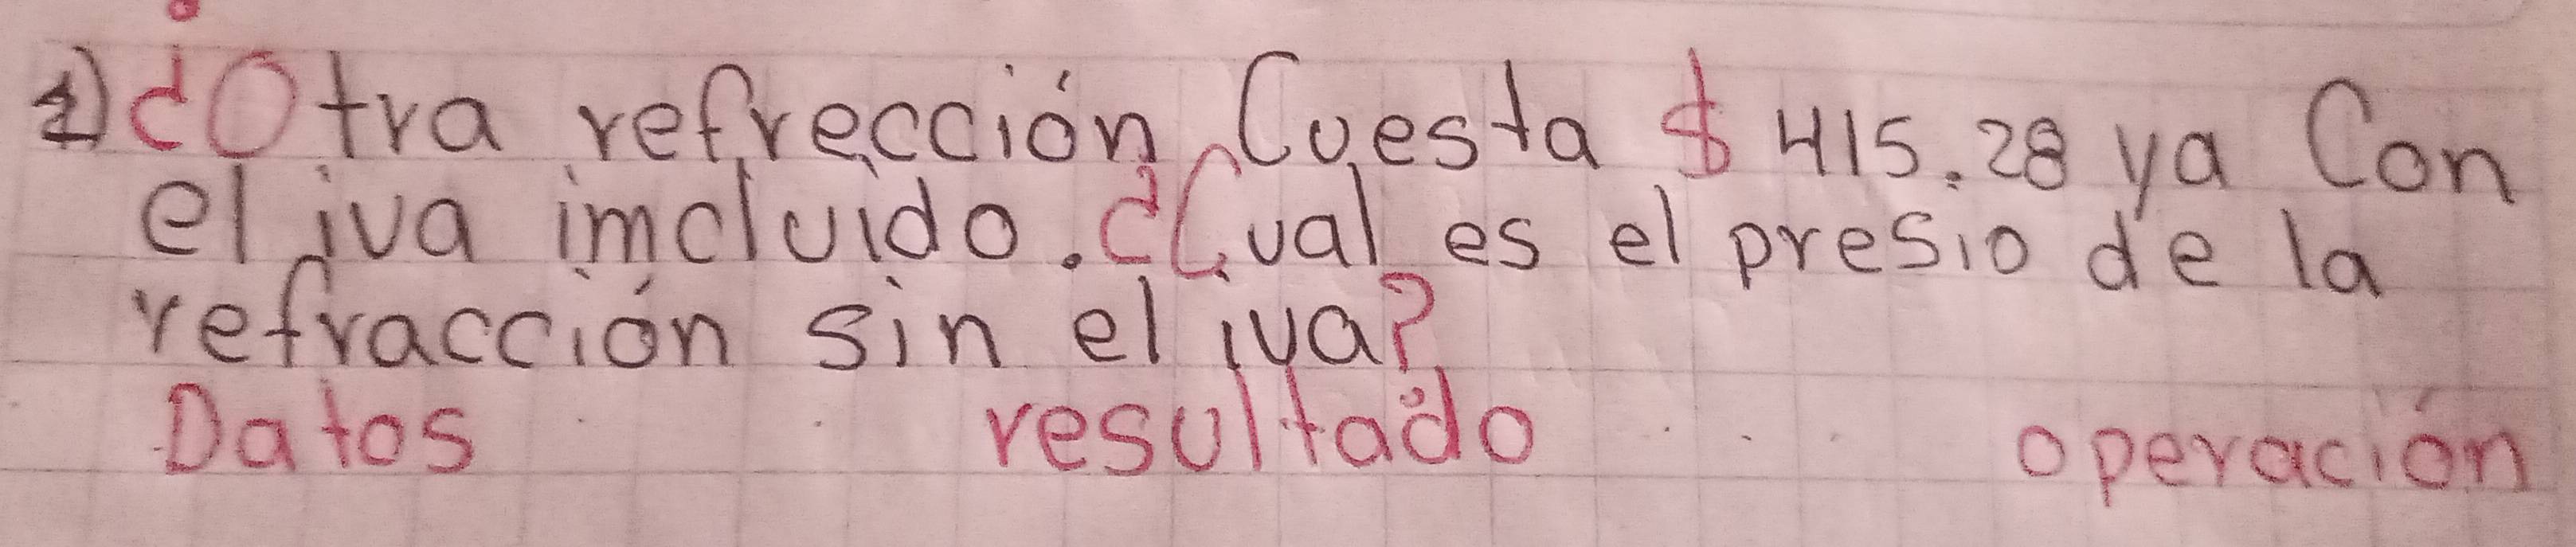 1) ¿Otra refrección Cuesta $ 415.28 ya Con
el iva imcluido. ¿Cual es el presio de la
refracción sin el iva?
Datos resultado operación